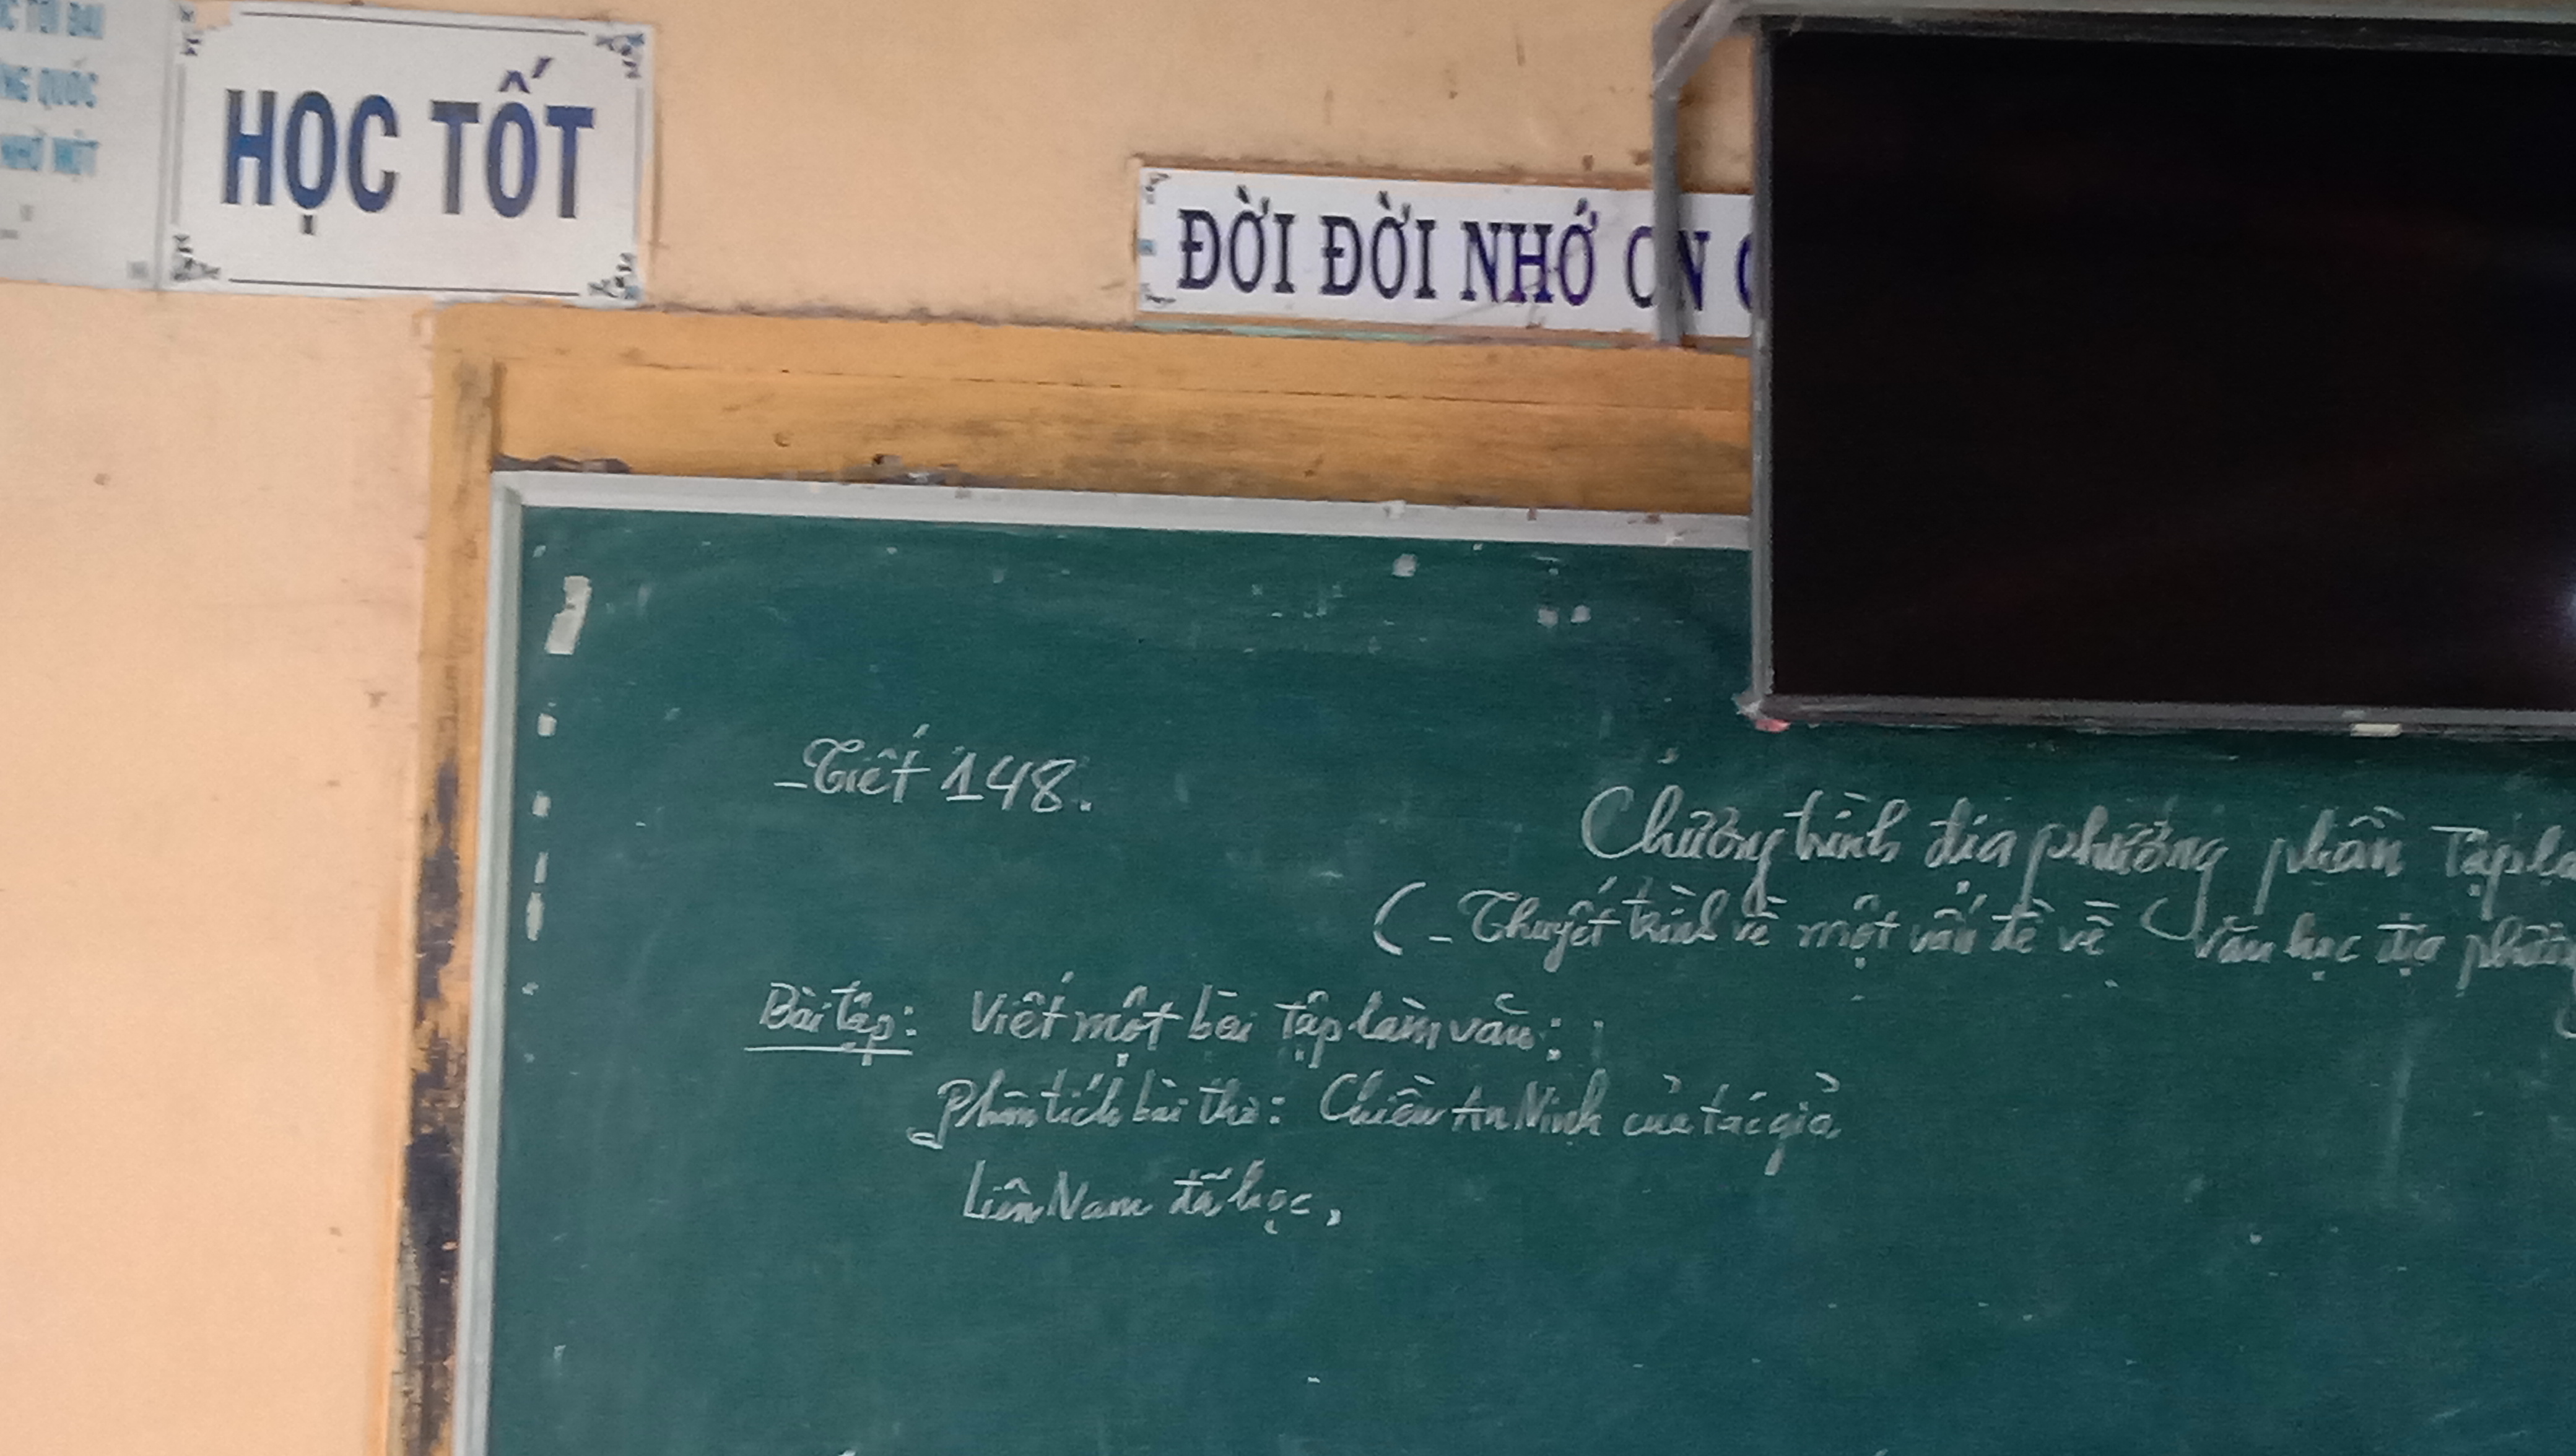 C TỚI ĐÀI
NG QUỐC
NHỜ MỘT
HỌC TỐT
ĐỜI ĐỜI NHỚ ƠN
- Tiết 148.
Chương trình địa phương phần Tập là
( - Thuyết trình về một vấn đề về văn học địa phương
Bài tập: Viết một bài tập làm văn:
Phân tích bài thơ: Chiều An Ninh của tác giả
Liên Nam đã học.